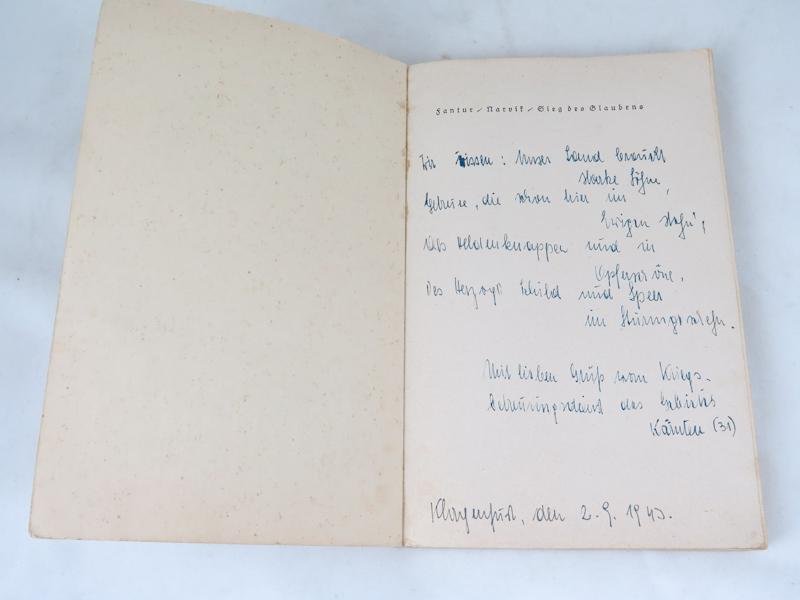 Fantur / Narvik / Sieg des Glaubens
Wir wissen: Unser Land braucht
starke Söhne,
Getreue, die schon hier im
Ewigen stehn,
Als Heldenknappen und in
Opferschöne,
Des Herzogs Schild und Speer
im Sturmgeschehn.
Mit lieben Gruß vom Kriegs-
betreuungsdienst des Gebietes
Kärnten (31)
Klagenfurt, den 2. 9. 1943.